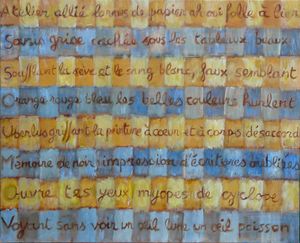 Atelier allié formes de papier ah oui folle à lier
Souris grise cachée sous les tableaux beaux
Soufflant la sève et le sang blanc, faux semblant
Orange rouge bleu les belles couleurs hurlent
griffant la peinture à coeur et à corps désaccord
Mémoire de noir impression d'écritures oubliées
Ouvre tes yeux myopes de cyclope
Voyant sans voir un oeil lune un oeil poisson